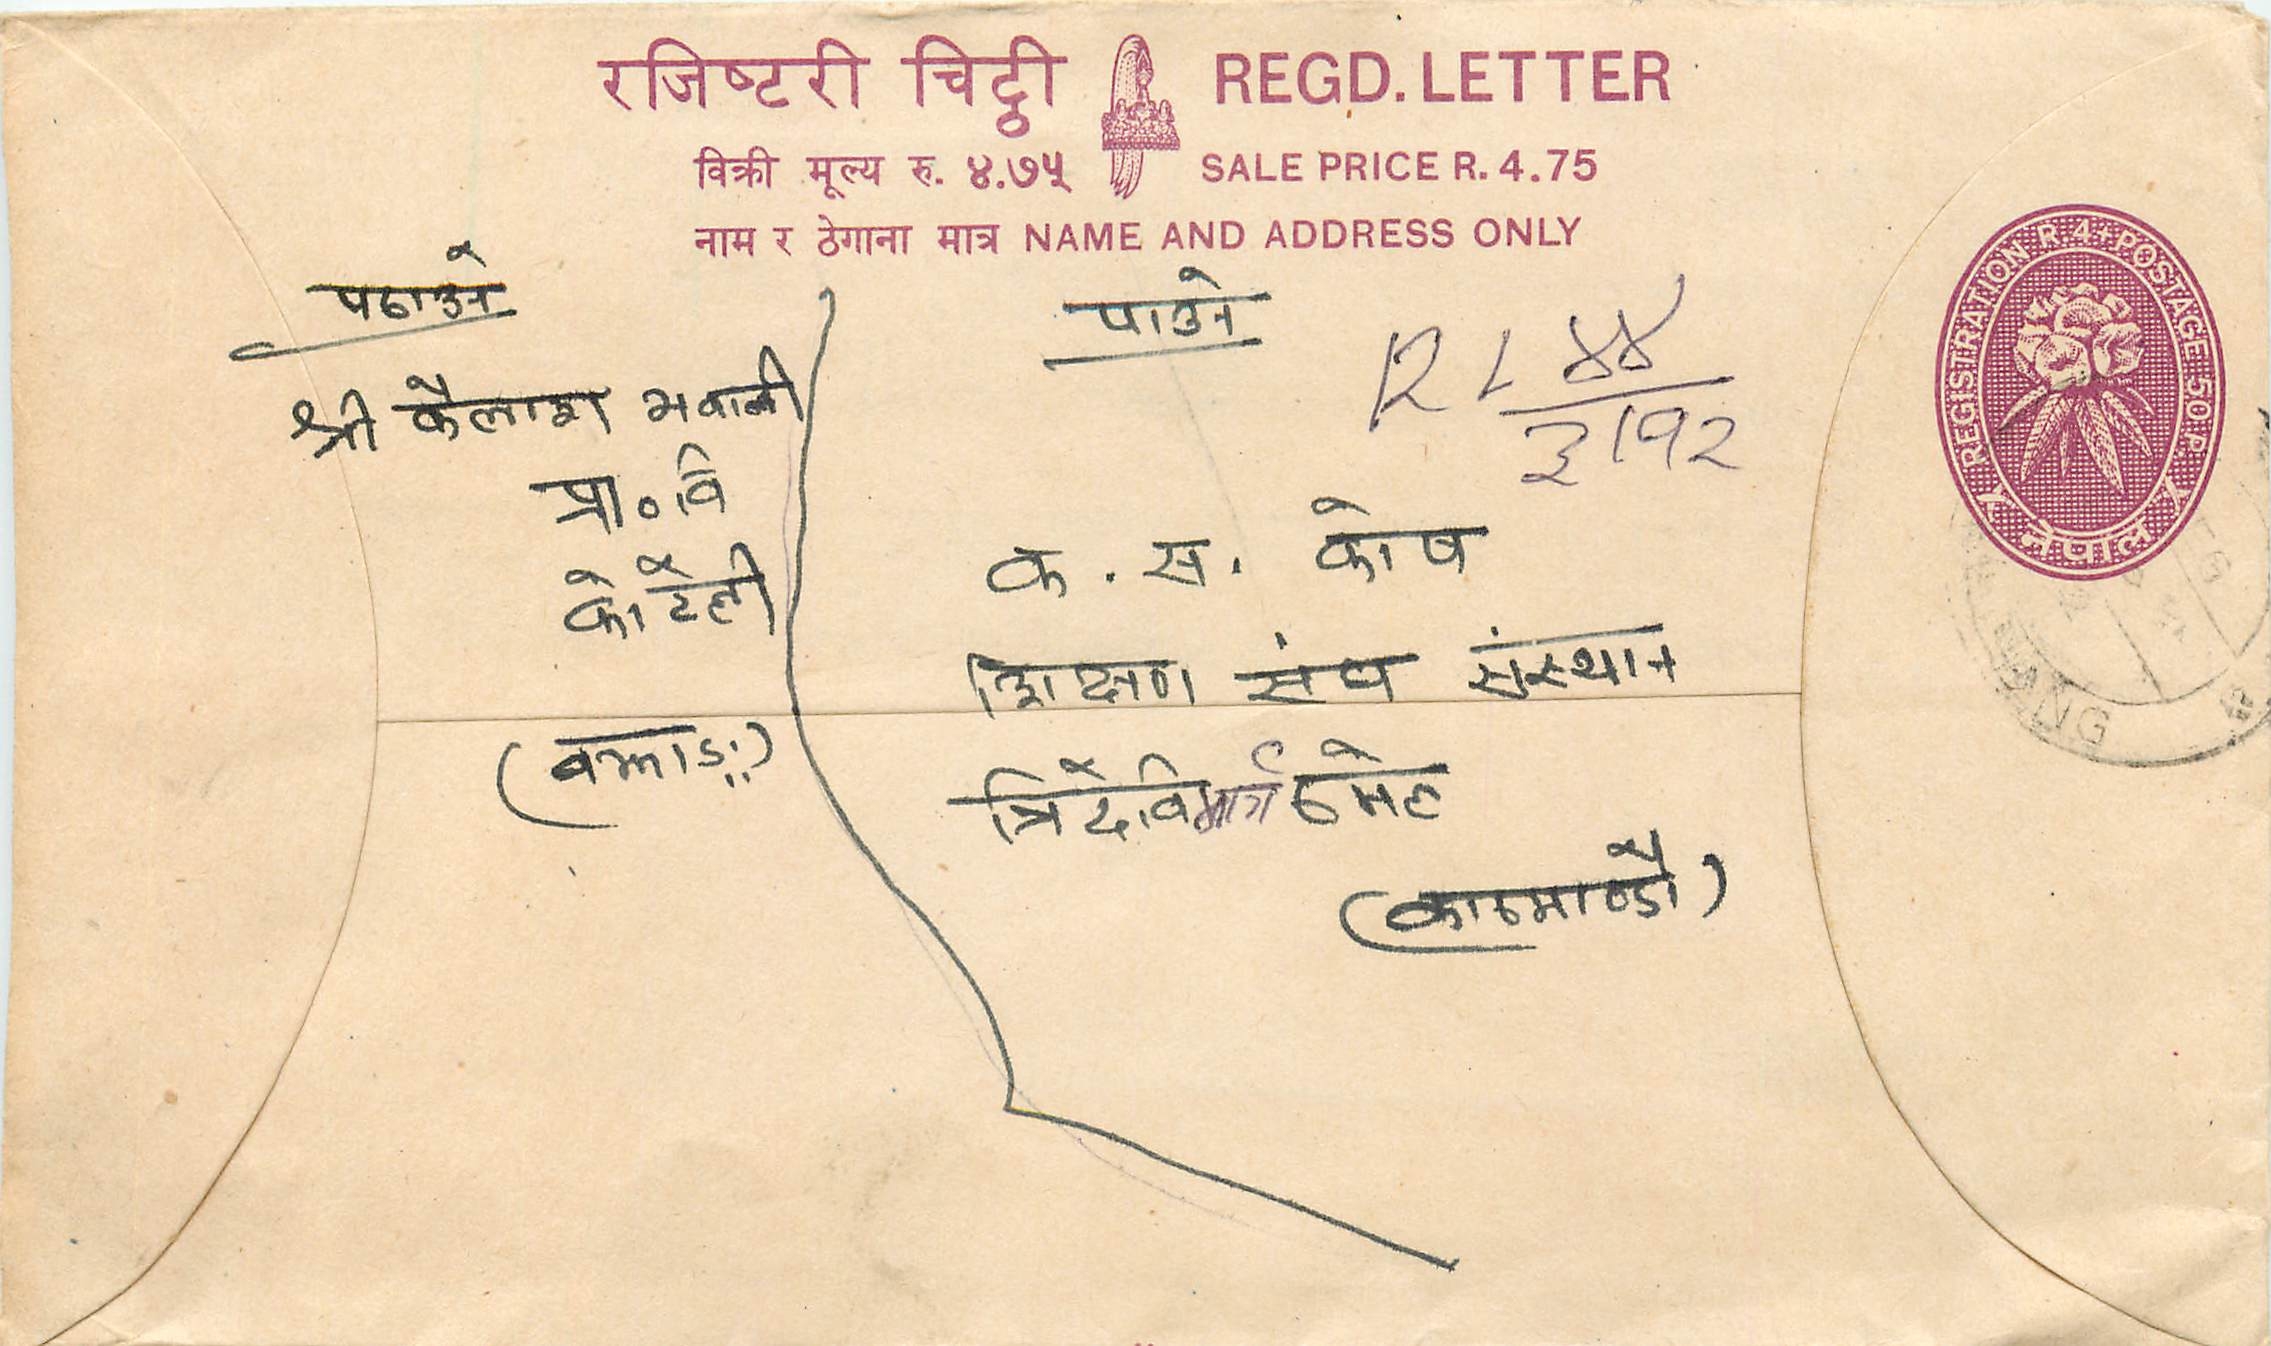 रजिष्टरी चिट्ठी REGD. LETTER
विक्री मूल्य रु. ४.७५ SALE PRICE R. 4.75
नाम र ठेगाना मात्र NAME AND ADDRESS ONLY
REGISTRATION R.4+POSTAGE 50 P.
नेपाल
पठाउने
श्री कैलाश भवानी
प्रा०वि
कोटैली
(बझाङ)
पाउने
R L ४४
३।१२
क. स. कोष
शिक्षण संघ संस्थान
त्रिदेवि मार्ग ठमेल
(काठमाण्डौ)